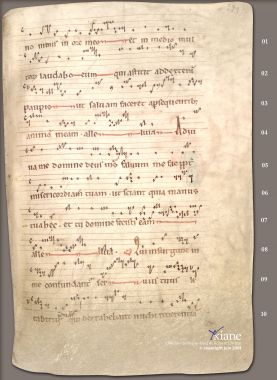 no nimis in ore meo et in medio mul
torum laudabo eum qui astitit addexteris
pauperis ut salvam faceret apsequentib;
animam meam. alle luia Adiu
va me domine deus meus salvum me fac propter
misericordiam tuam. ut sciant quia manus
tua hec. et tu domine fecisti eam
alle luia. Qui insurgunt in
me confundant ser vus tuus
detrahebant michi reverentia
01
02
03
04
05
06
07
08
09
10